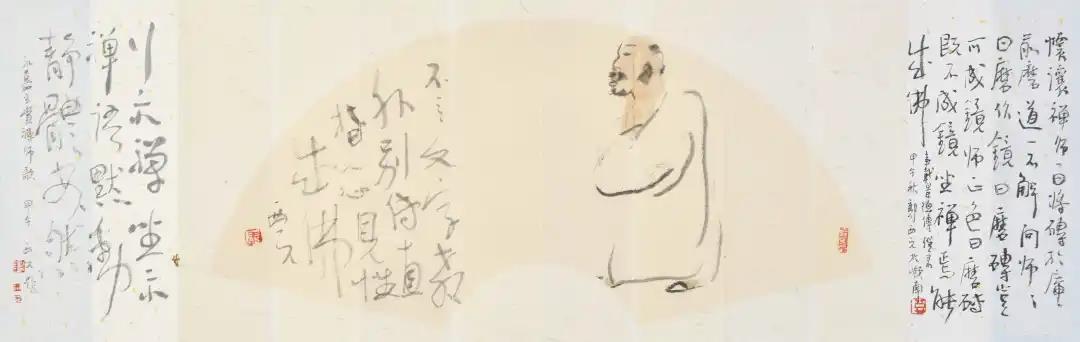 懷讓禪師日將磚於庵
前磨道一不解問師〻
曰磨作鏡曰磨磚豈
可成鏡師正色曰磨磚
既不成鏡坐禪焉能
成佛
事載景德傳燈錄
甲午秋
不立文字教
外別傳直
指心見性
成佛
西元
行亦禪坐亦
禪語默動
靜體安然
永嘉玄覺禪師歌 甲午 西元題